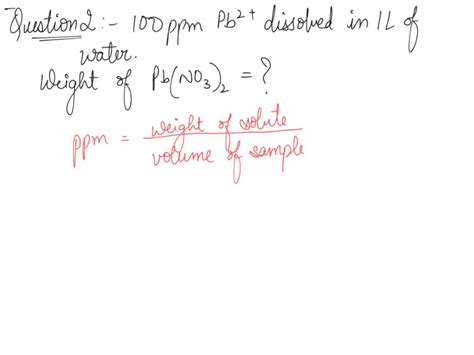 Question2:- 100ppm Pb²⁺ dissolved in 1L of
water.
Weight of Pb(NO₃)₂ = ?
ppm = weight of solute
volume of sample